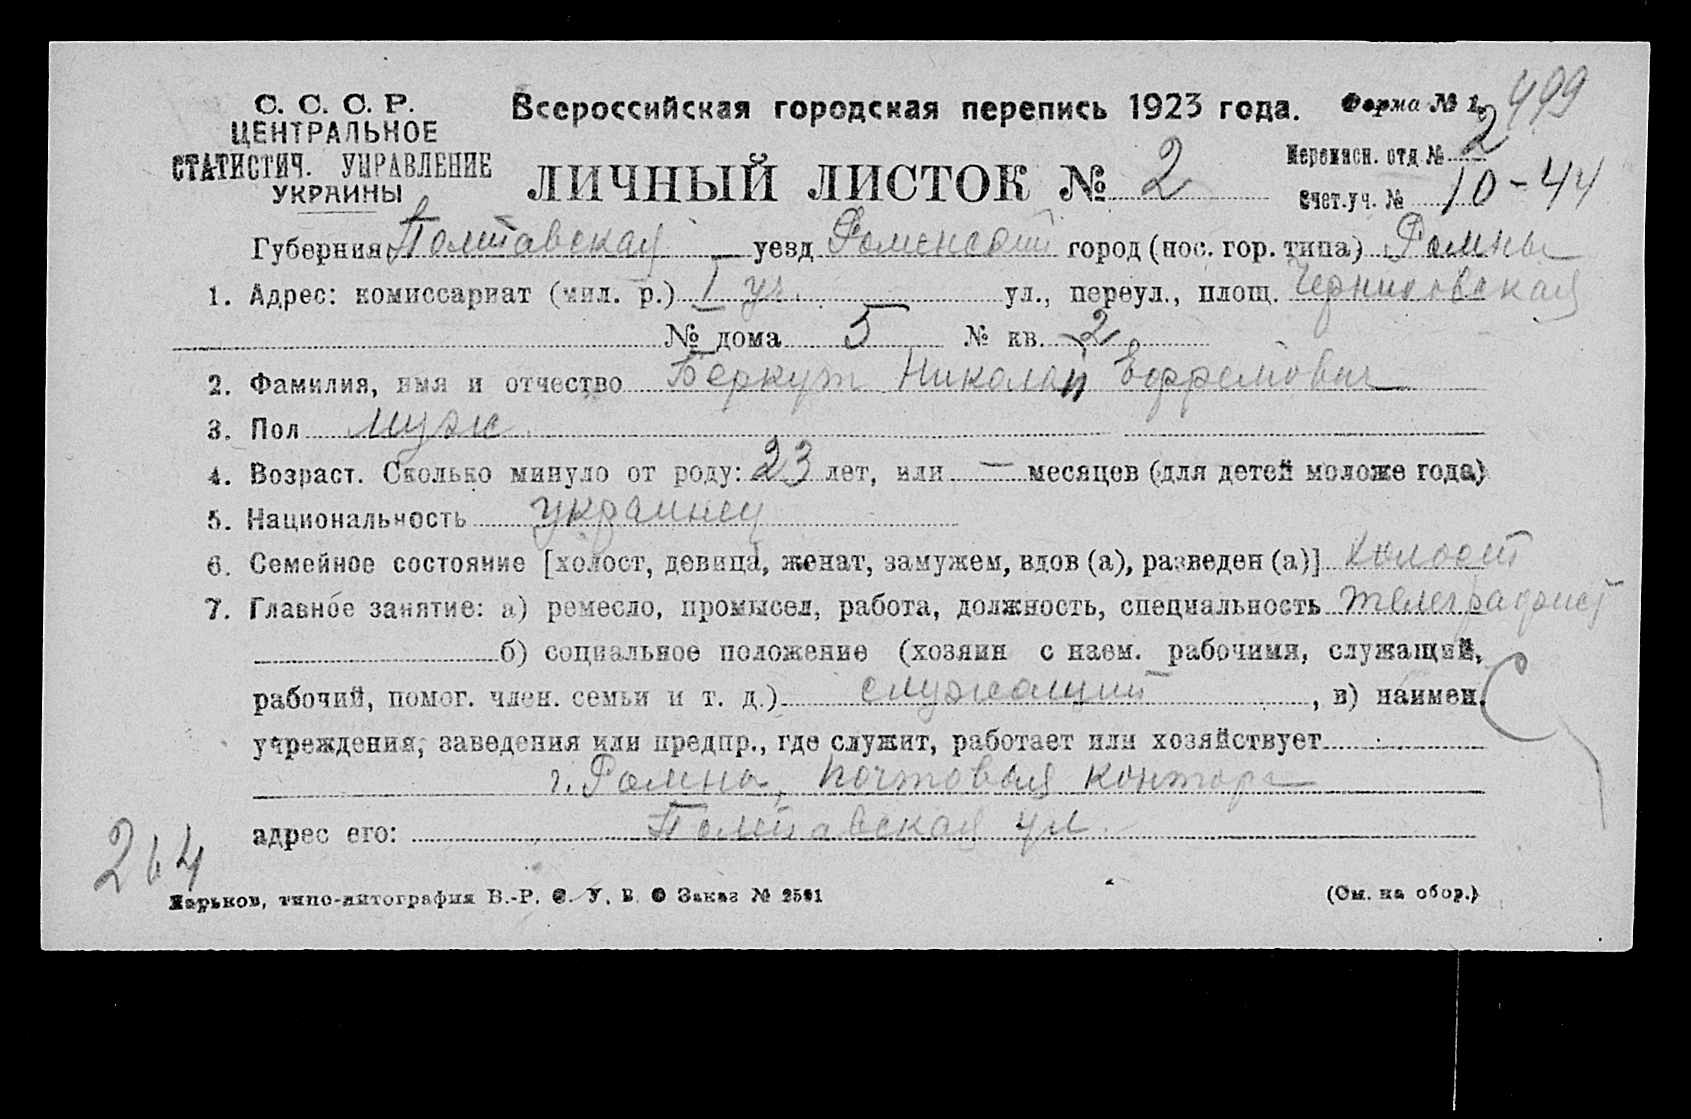 С. С. С. Р.
ЦЕНТРАЛЬНОЕ
СТАТИСТИЧ. УПРАВЛЕНИЕ
УКРАИНЫ
Всероссийская городская перепись 1923 года.
Форма № 1. 499
ЛИЧНЫЙ ЛИСТОК № 2
Переписн. отд. № 2
Счет. уч. № 10-44
Губерния Полтавская уезд Роменский город (пос. гор. типа) Ромны
1. Адрес: комиссариат (мил. р.) I уч. ул., переул., площ. Черниговская
№ дома 5 № кв. 2
2. Фамилия, имя и отчество Беркут Николай Ефремович
3. Пол муж
4. Возраст. Сколько минуло от роду: 23 лет, или — месяцев (для детей моложе года)
5. Национальность украинец
6. Семейное состояние [холост, девица, женат, замужем, вдов (а), разведен (а)] холост
7. Главное занятие: а) ремесло, промысел, работа, должность, специальность телеграфист
б) социальное положение (хозяин с наем. рабочими, служащий,
рабочий, помог. член. семьи и т. д.) служащий , в) наимен.
учреждения, заведения или предпр., где служит, работает или хозяйствует
г. Ромны, почтовая контора
адрес его: Полтавская ул.
264
Харьков, типо-литография В.-Р. С. У. В. О Заказ № 2501
(См. на обор.)